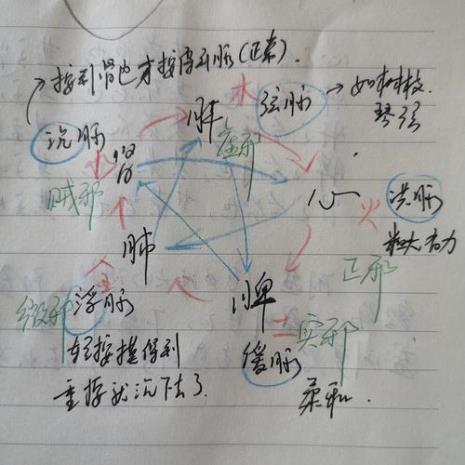 按到骨也才按得到脉(正常).
木
弦脉
如树枝.
琴弦
沉脉
肝
虚邪
水
肾
贼邪
心
火
洪脉
粗大有力
肺
正邪
金
微邪
浮脉
脾
土
实邪
轻按摸得到
缓脉
重按就沉下去了.
柔和.